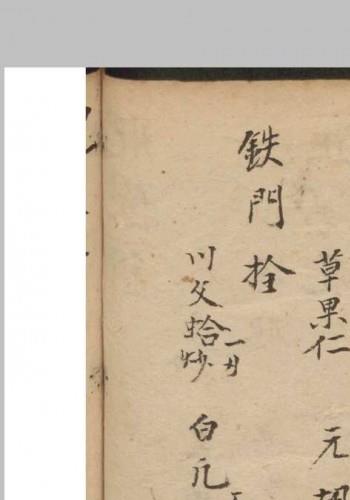 草果仁 元胡
鉄門拴
川文蛤炒一卄 白凡